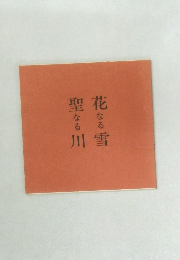 花なる雪
聖なる川